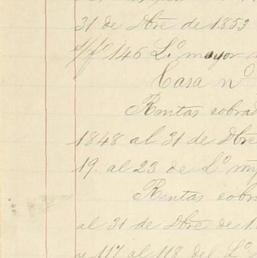 31 de Dbre de 1853
f/fº 146 Lº mayor
Casa nº
Rentas cobra
1848 al 31 de Dbre
19 al 23 de Lº
Rentas cobr
al 31 de Dbre de 1
y 117 al 118 del Lº